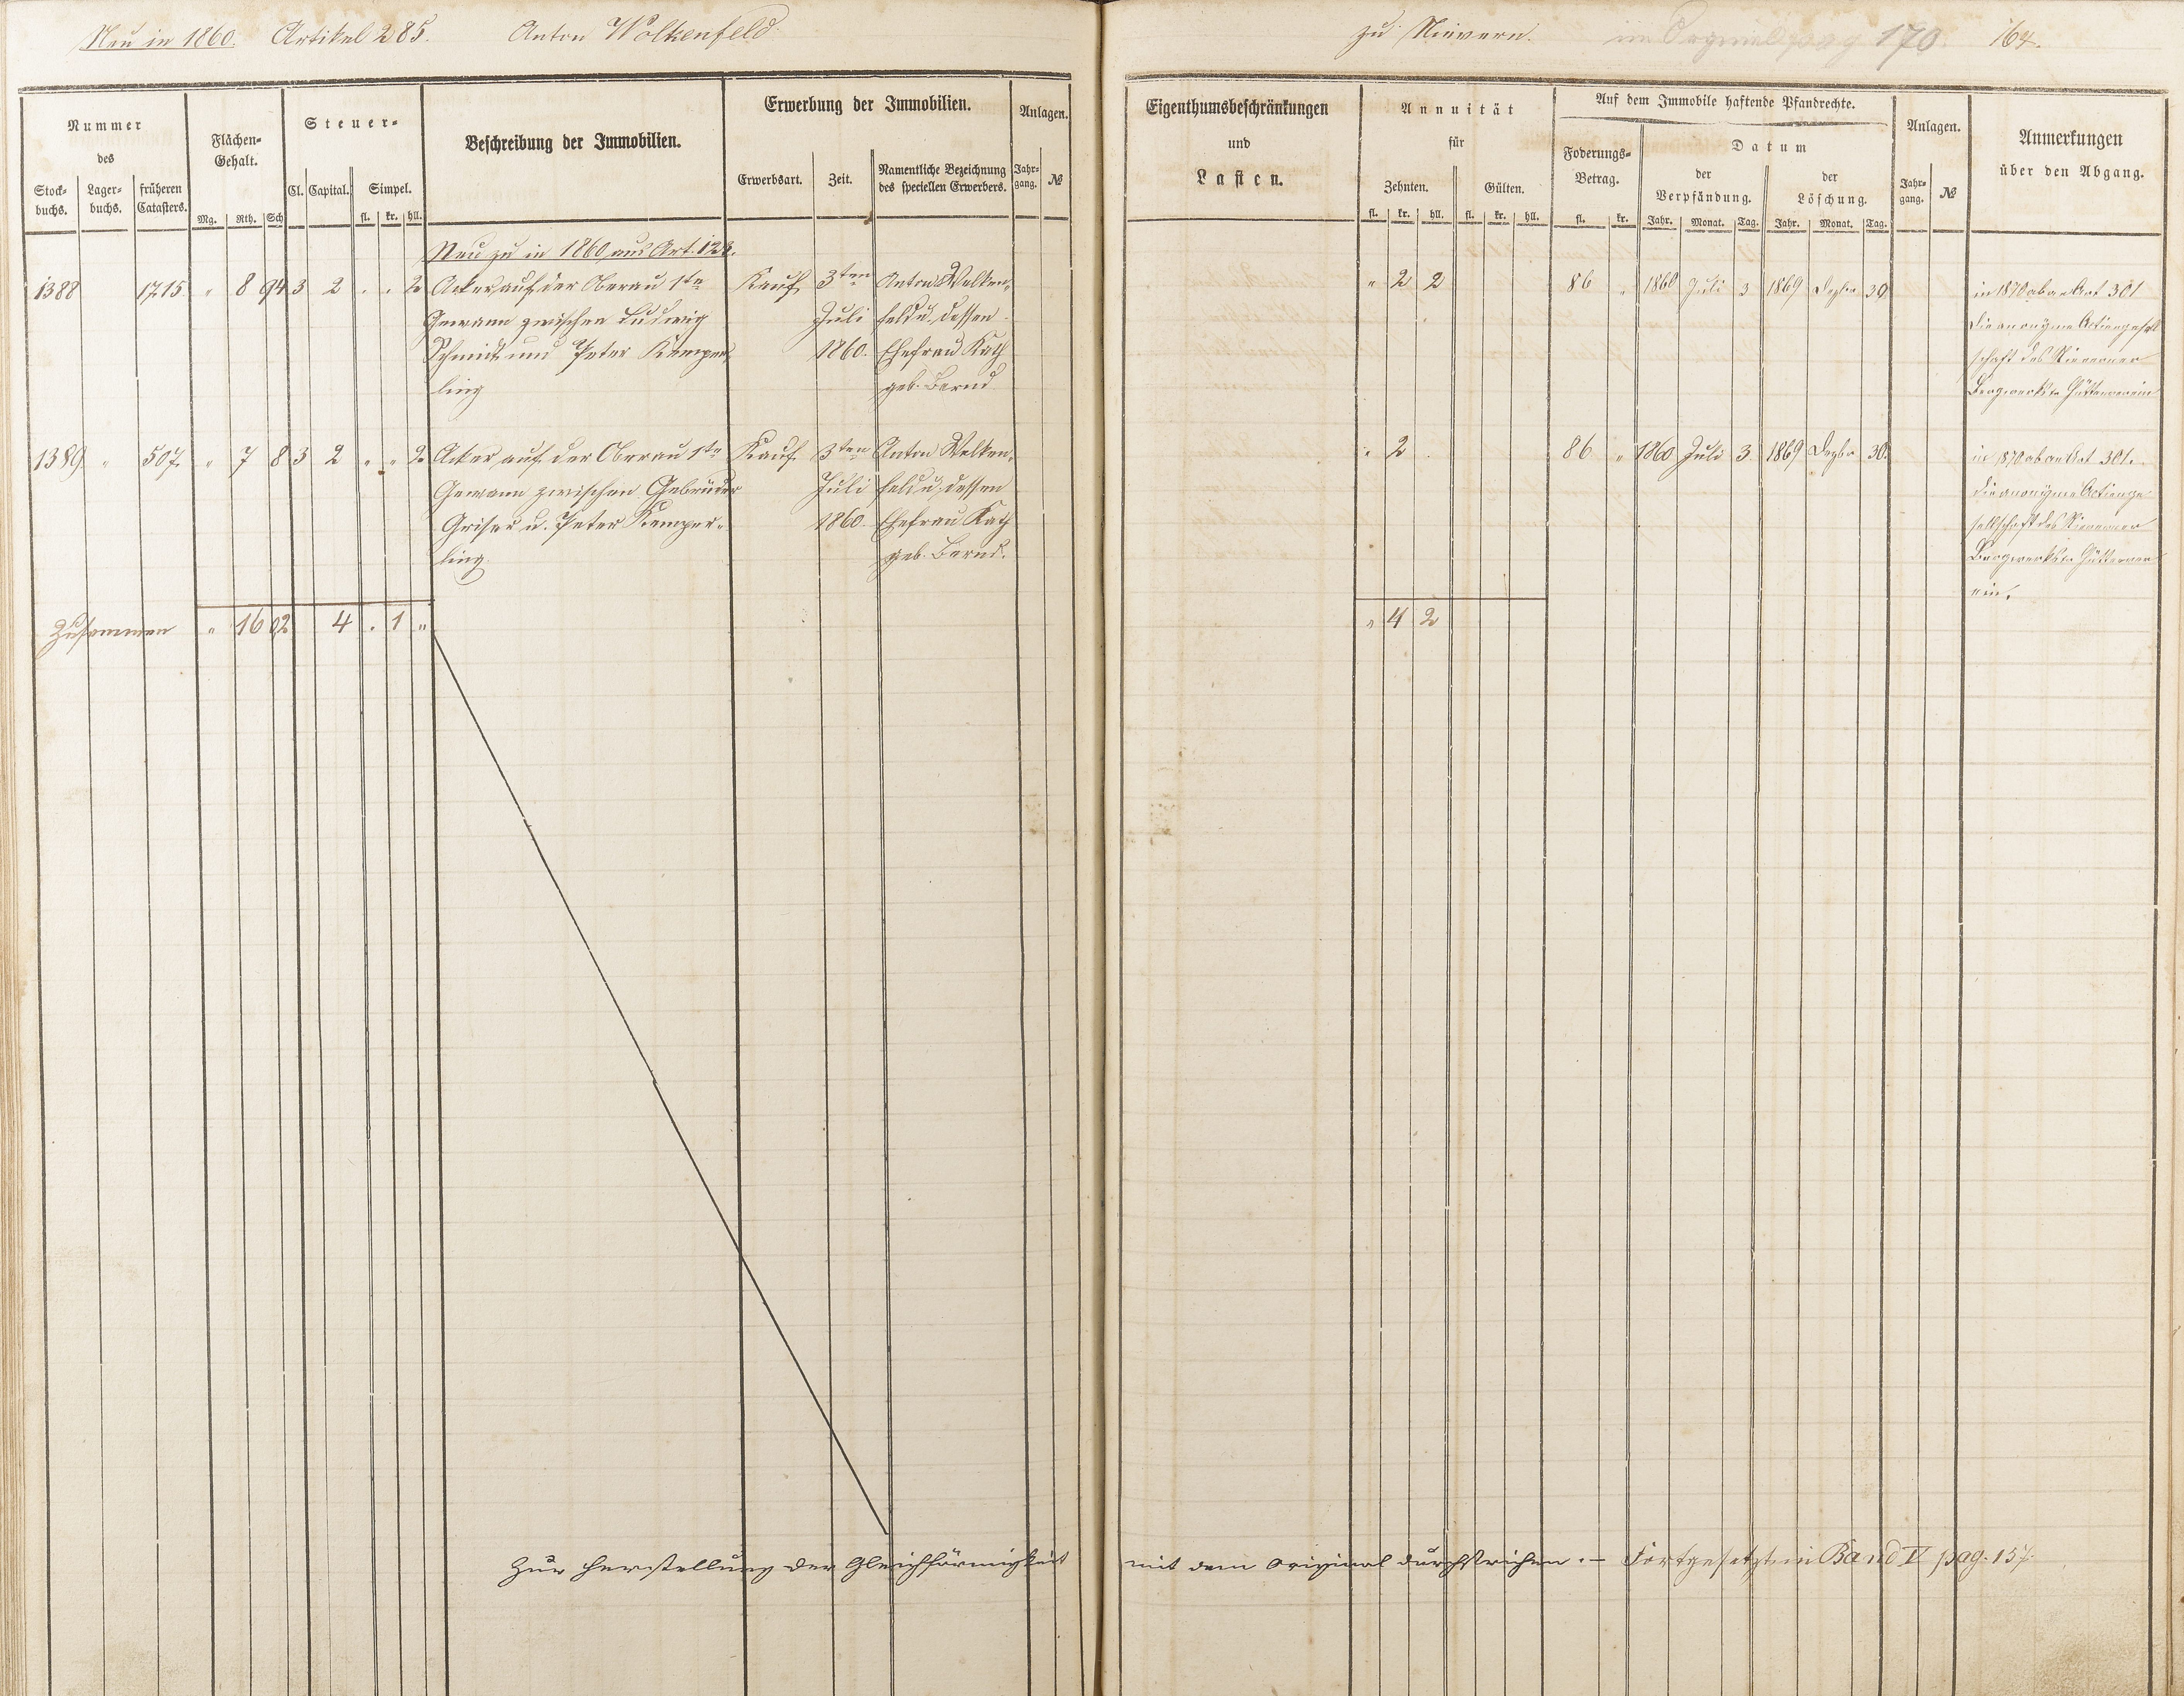 Neu in 1860. Artikel 285. Anton Wolkenfeld
zu Nievern. 170. 164.
Nummer
des
Stock-
buchs.
Lager-
buchs.
früheren
Catasters.
Flächen-
Gehalt.
Mg. Rth. Sch
Steuer-
Cl. Capital. Simpel.
fl. kr. hll.
Beschreibung der Immobilien.
Erwerbung der Immobilien.
Erwerbsart. Zeit.
Namentliche Bezeichnung
des speciellen Erwerbers.
Anlagen.
Jahr-
gang. №
Eigenthumsbeschränkungen
und
Lasten.
Annuität
für
Zehnten. Gülten.
fl. kr. hll. fl. kr. hll.
Auf dem Immobile haftende Pfandrechte.
Foderungs-
Betrag.
fl. kr.
Datum
der
Verpfändung.
der
Löschung.
Jahr. Monat. Tag. Jahr. Monat. Tag.
Anlagen.
Jahr-
gang. №
Anmerkungen
über den Abgang.
Neu zu in 1860 aus Art. 128.
1388 1715 " 8 94 3 2 . . 2 Acker auf der Oberau 1te Kauf 3ten Anton Wolken-
Gewann zwischen Ludwig Juli feld u. dessen
Schmidt und Peter Kemper- 1860. Ehefrau Kath
ling geb. Bernd
" 2 2 86 " 1860 Juli 3 1869 Dezbr 30 in 1870 ab an Art 301
die anonyme Actiengesell
schaft des Nieverner
Bergwerks u. Hüttenverein
1389 " 507 " 7 8 3 2 " " 2 Acker auf der Oberau 1te Kauf 3ten Anton Wolken-
Gewann zwischen Gebrüder Juli feld u. dessen
Griser u. Peter Kemper- 1860 Ehefrau Kath
ling. geb. Bernd.
" 2 . 86 " 1860 Juli 3 1869 Dezbr 30. in 1870 ab an Art 301.
die anonyme Actienge
sellschaft des Nieverner
Bergwerks u. Hüttenver
ein.
Zusammen " 16 02 4 . 1 "
" 4 2
Zur Herstellung der Gleichförmigkeit mit dem Original durchstrichen. – Fortgesetzt in Band V pag. 157.